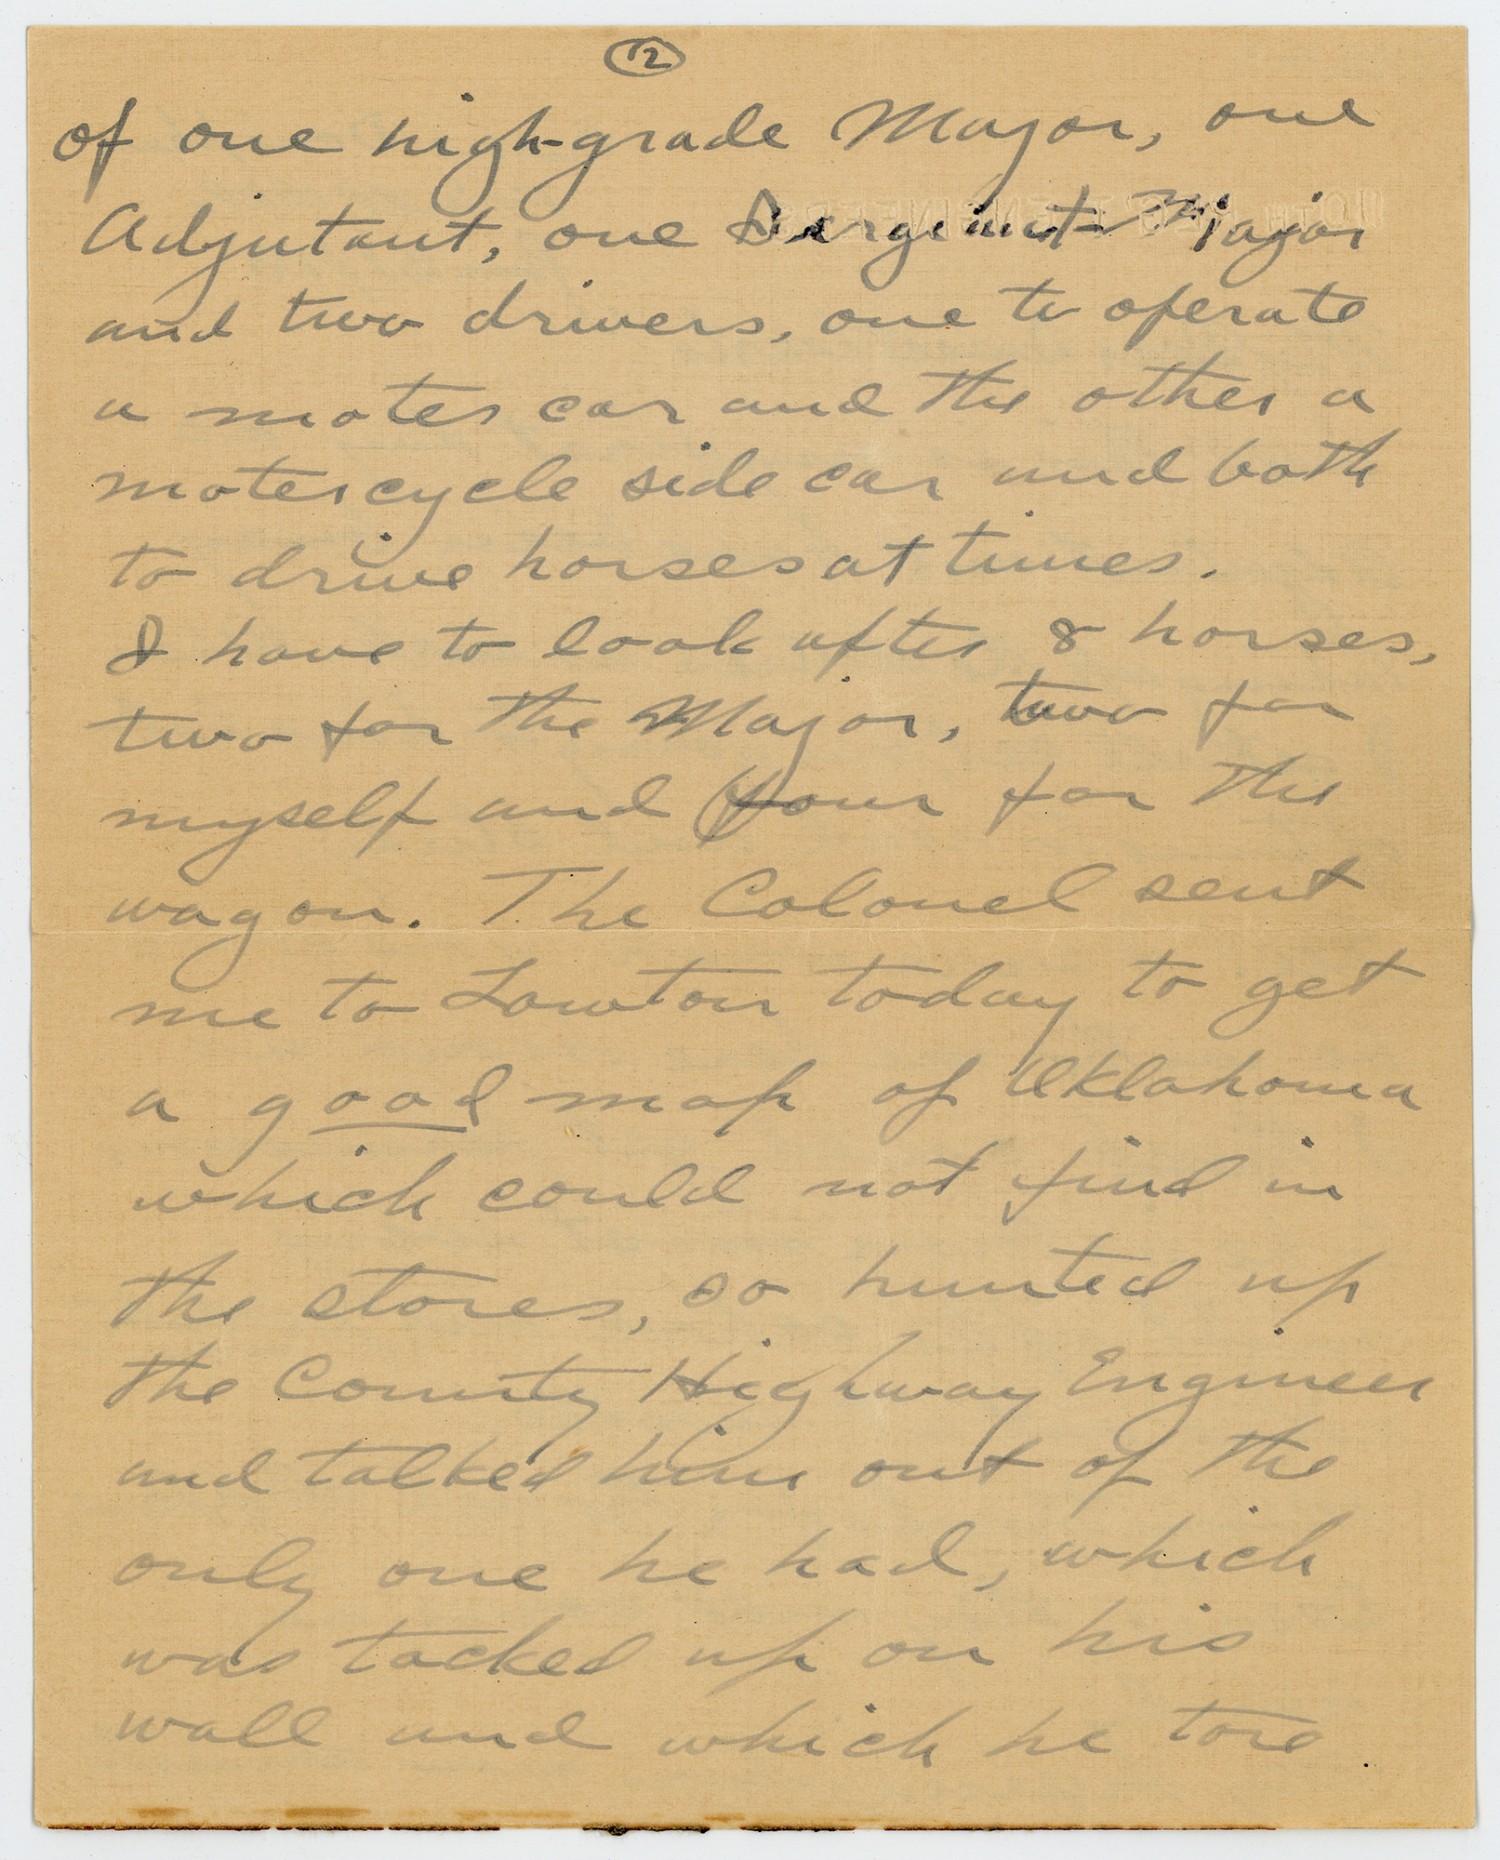 12
of one high-grade Major, one
Adjutant, one Sergeant-Major
and two drivers, one to operate
a moter car and the other a
motercycle side car and both
to drive horses at times.
I have to look after 8 horses,
two for the Major, two for
myself and four for the
wagon. The Colonel sent
me to Lawton today to get
a good map of Oklahoma
which could not find in
the stores, so hunted up
the County Highway Engineer
and talked him out of the
only one he had, which
was tacked up on his
wall and which he tore